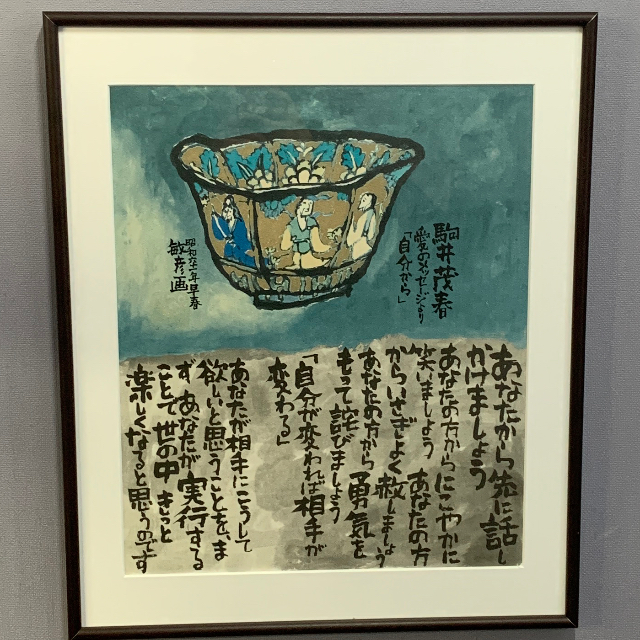 駒井茂春
愛のメッセージより
「自分から」
昭和六十一年早春
敏彦画
あなたから先に話し
かけましょう
あなたの方からにこやかに
笑いましょう あなたの方
からいさぎよく赦しましょう
あなたの方から 勇気を
もって詫びましょう
「自分が変われば相手が
変わる」
あなたが相手にこうして
欲しいと思うことを、ま
ず あなたが 実行する
ことで 世の中 きっと
楽しくなると思うのです